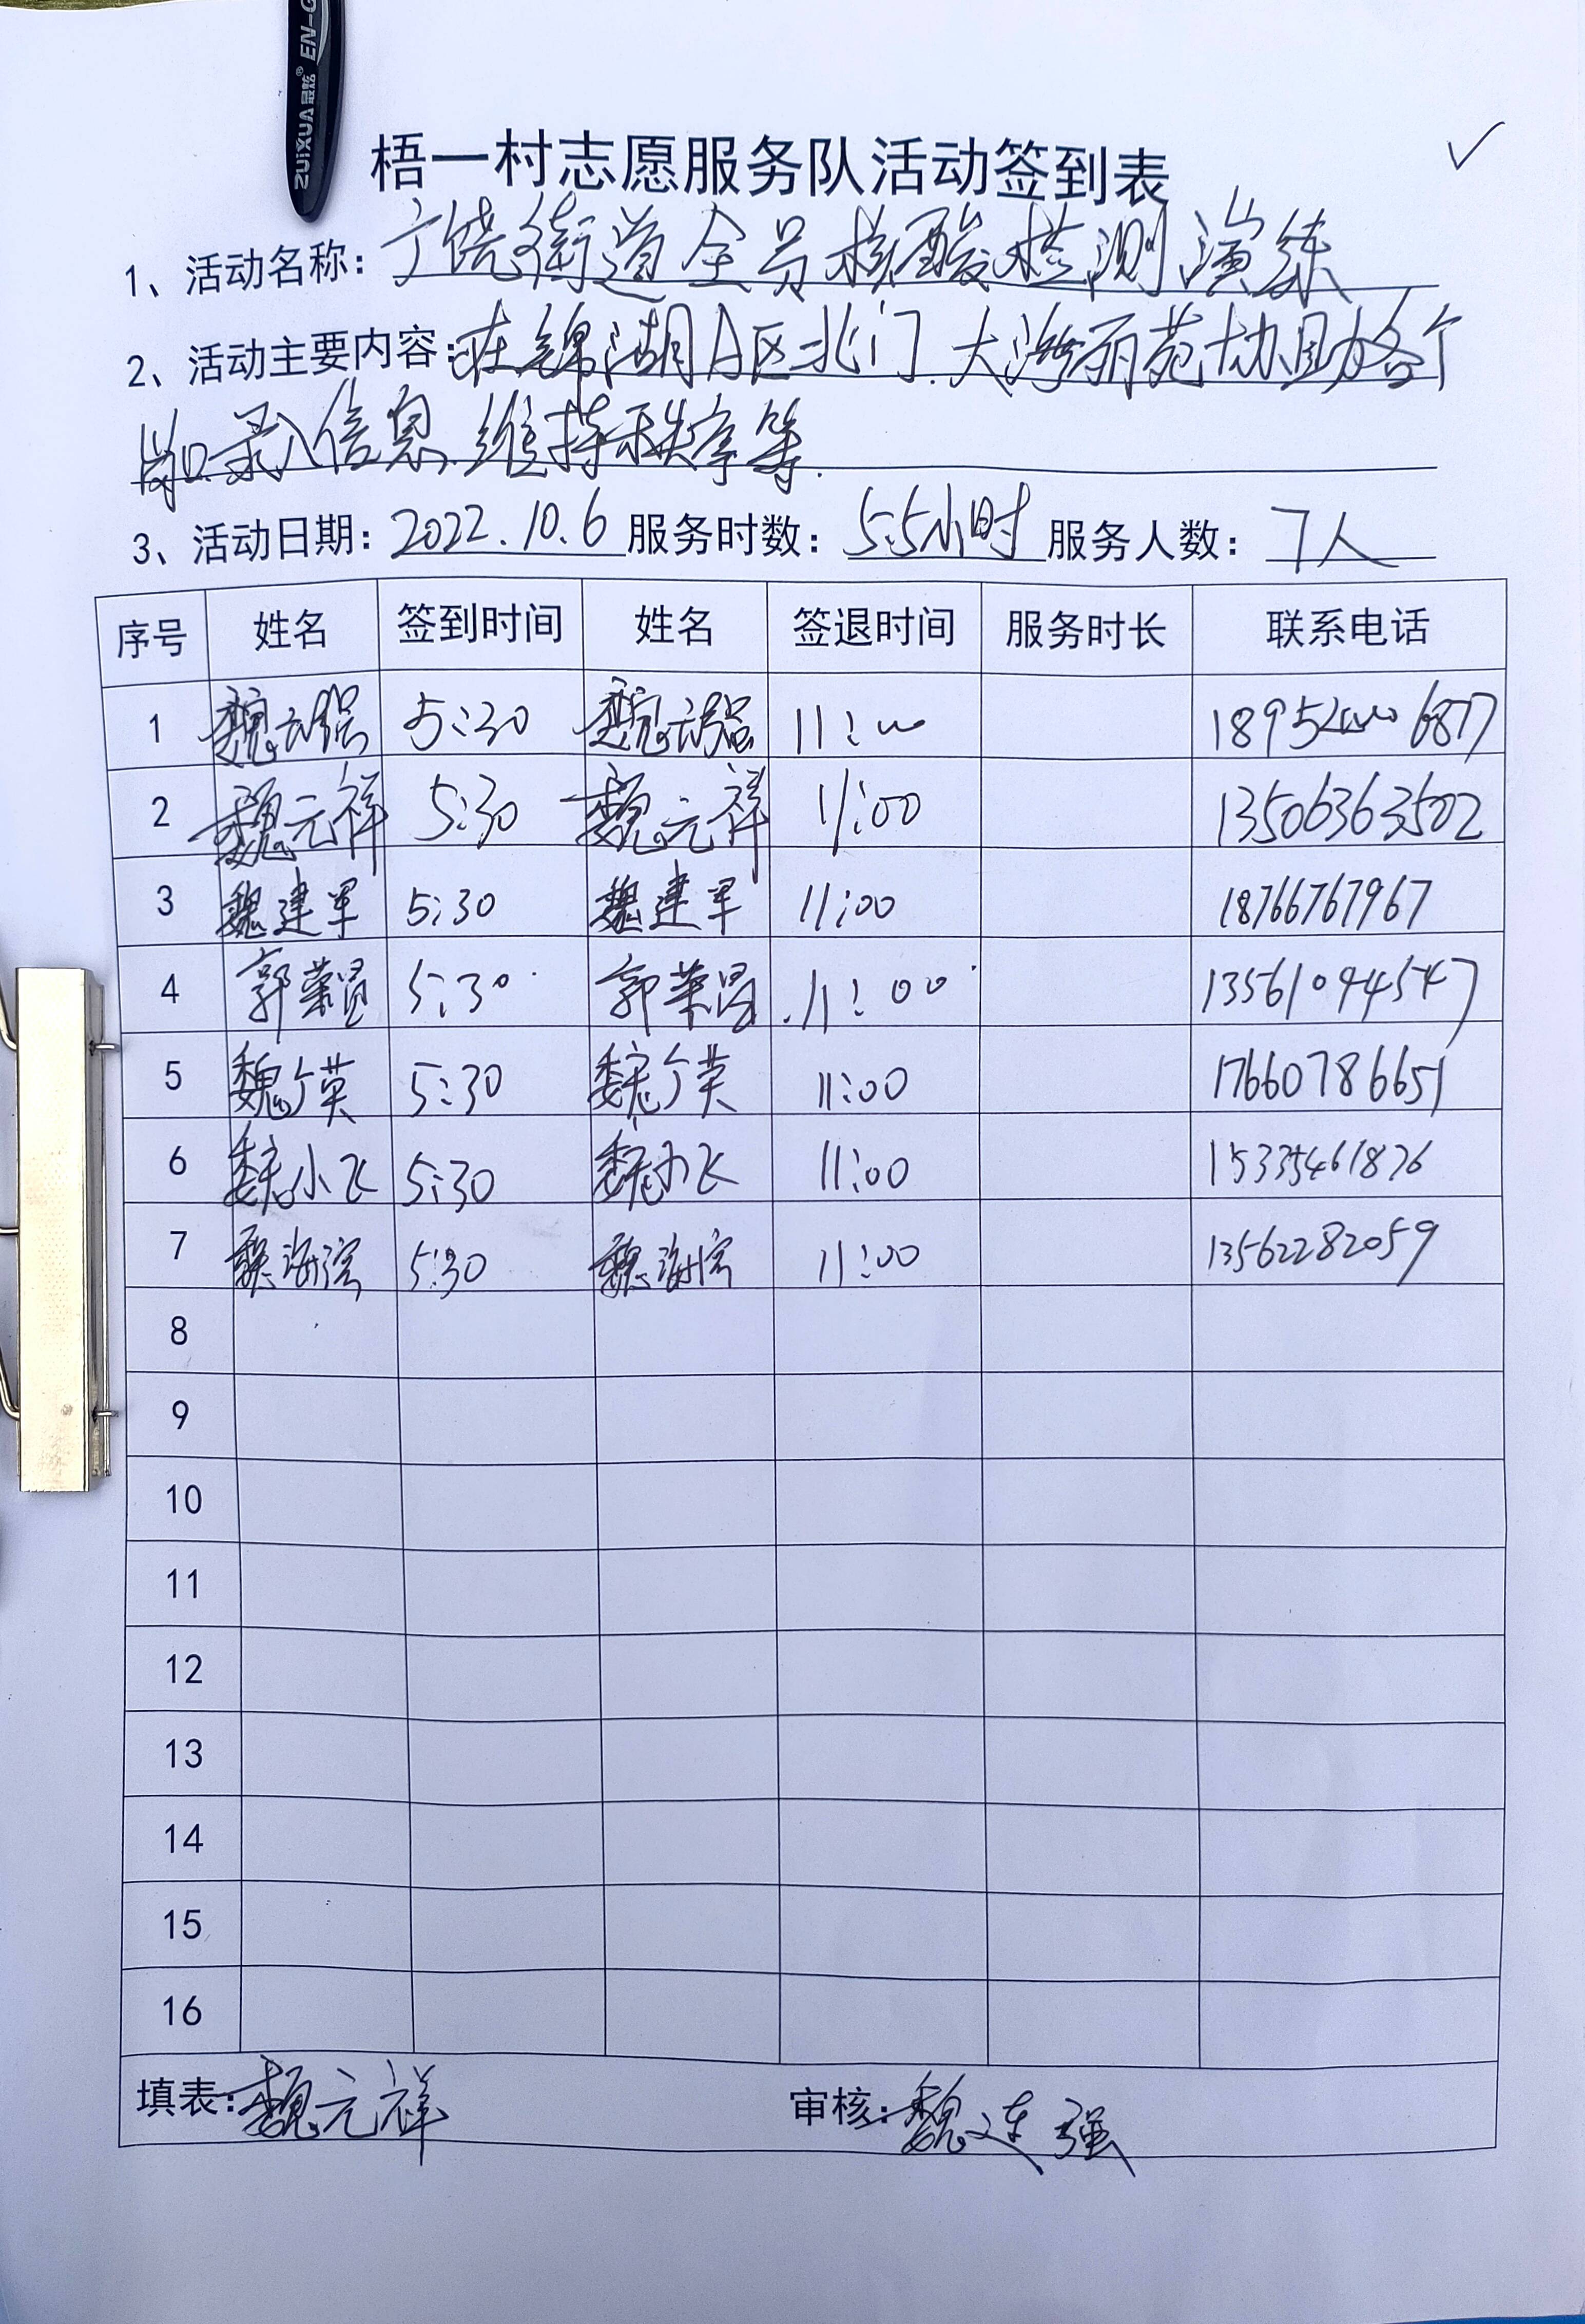 ZUiXUA最炫® EN-G
梧一村志愿服务队活动签到表
1、活动名称：广饶街道全员核酸检测演练
2、活动主要内容：在锦湖A区北门、大海丽苑协助各个
岗口录入信息、维持秩序等.
3、活动日期：2022.10.6 服务时数：5.5小时 服务人数：7人
序号 姓名 签到时间 姓名 签退时间 服务时长 联系电话
1 魏 强 5:30 魏 强 11:00
2 魏元祥 5:30 魏元祥 11:00 13506363502
3 魏建军 5:30 魏建军 11:00 18766767967
4 郭荣 5:30 郭荣 11:00 13561094547
5 魏广英 5:30 魏广英 11:00 17660786651
6 魏小飞 5:30 魏小飞 11:00 15335461876
7 魏海滨 5:30 魏海滨 11:00 13562282059
8
9
10
11
12
13
14
15
16
填表：魏元祥 审核：魏连强